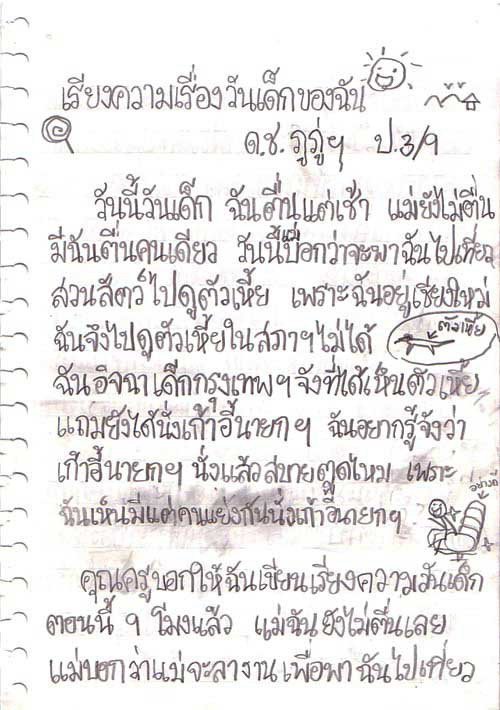 เรียงความเรื่องวันเด็กของฉัน
ด.ช. ภูภู่ฯ ป.3/9
วันนี้วันเด็ก ฉันตื่นแต่เช้า แม่ยังไม่ตื่น
มีฉันตื่นคนเดียว วันนี้แม่บอกว่าจะพาฉันไปเที่ยว
สวนสัตว์ไปดูตัวเหี้ย เพราะฉันอยู่เชียงใหม่
ฉันจึงไปดูตัวเหี้ยในสภาฯไม่ได้
ตัวเหี้ย
ฉันอิจฉาเด็กกรุงเทพฯจังที่ได้เห็นตัวเหี้ย
แถมยังได้นั่งเก้าอี้นายกฯ ฉันอยากรู้จังว่า
เก้าอี้นายกฯ นั่งแล้วสบายตูดไหม เพราะ
ฉันเห็นมีแต่คนแย่งกันนั่งเก้าอี้นายกฯ
คุณครูบอกให้ฉันเขียนเรียงความวันเด็ก
ตอนนี้ 9 โมงแล้ว แม่ฉันยังไม่ตื่นเลย
แม่บอกว่าแม่จะลางานเพื่อพาฉันไปเที่ยว